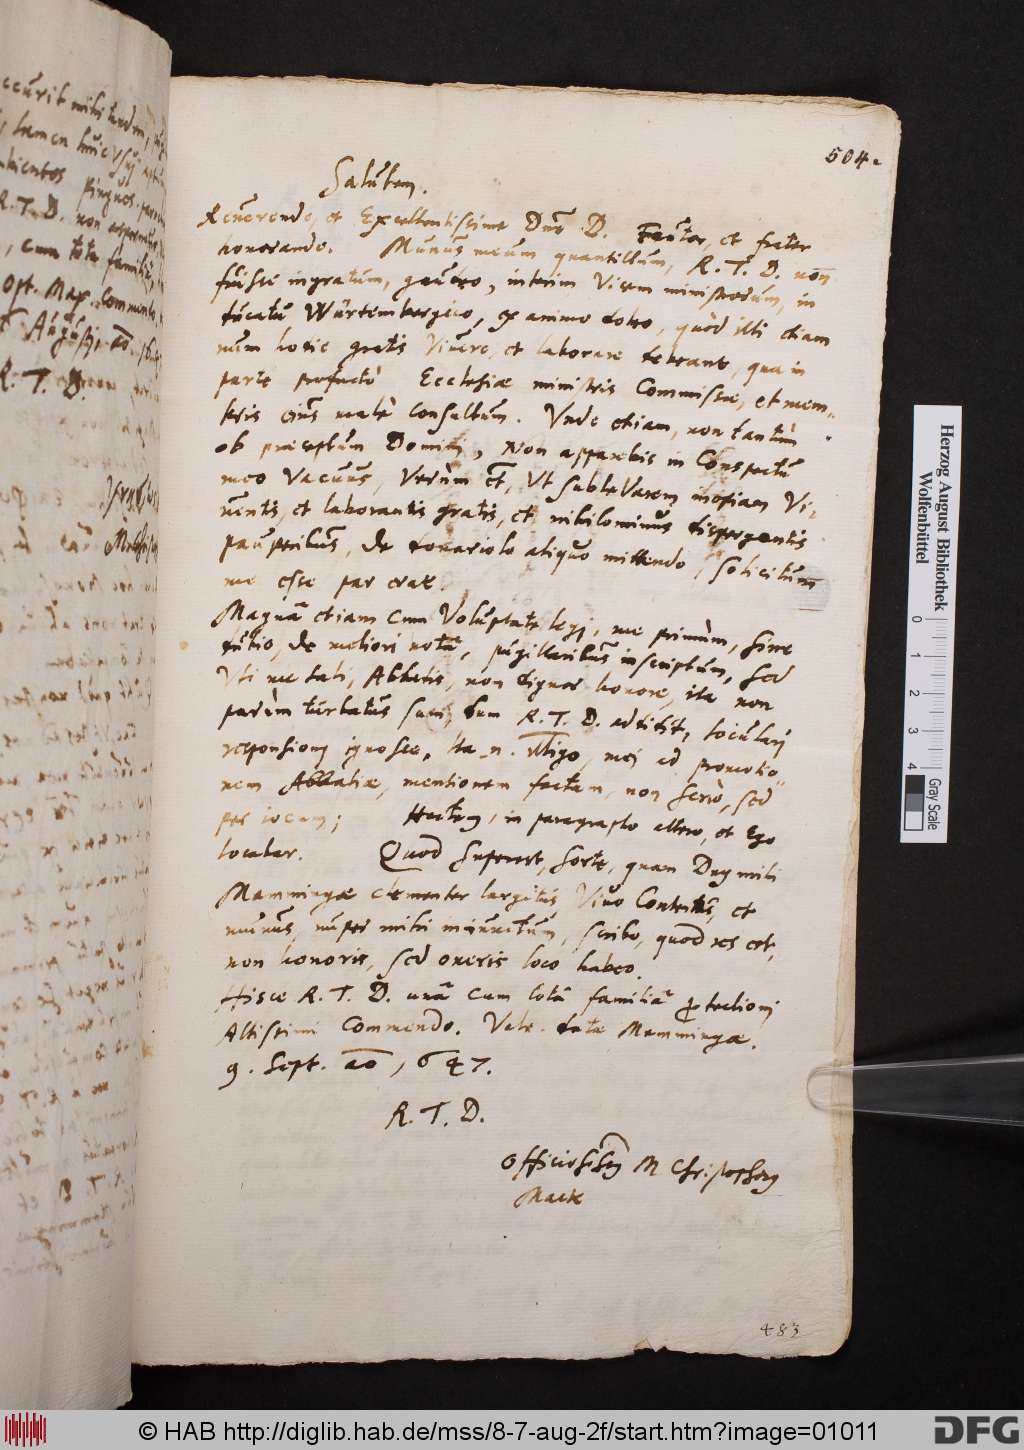 504.
Salutem.
Reverendo, et Excellentissime Dne D. Fautor, et frater
honorando. Munus meum quantillum, R. T. D. non
fuisse ingratum, gaudeo, interim vicem ministrorum, in
ducatu Würtembergico, ex animo doleo, quòd illi etiam
num hodie gratis vivere, et laborare debeant, qua in
parte profectò Ecclesiae ministris Commissae, et mem-
bris eius malè consultum. Unde etiam, non tantùm
ob praeceptum Domini, Non apparebis in Conspectu
meo Vacuus, Verùm et, Ut sublevarem inopiam Vi-
ventis, et laborantis gratis, et nihilominus dispergentis
pauperibus, de donariolo aliquo mittendo, solicitum
me esse par erat.
Magnâ etiam cum Voluptate legi, me primùm, sine
dubio, de meliori notâ, pugillaribus inscriptum, sed
Uti me tali, Abbatis, non dignor honore, ita non
parùm turbatus sum, dum R. T. D. addidit, Ioculari
responsioni ignosce, ita n. intelligo, mei ad promotio-
nem Abbatiae, mentionem factam, non seriò, sed
per iocum; in paragrapho altero, et Ego
Iocabar. Quod superest, sorte, quam Dns mihi
Mammingae clementer largitus, Vivo Contentus, et
munus, nuper mihi iniunctum, scribo, quod res est,
non honoris, sed oneris loco habeo.
Hisce R. T. D. unâ cum totâ familiâ protectioni
Altissimi Commendo. Vale. datae Mammingae.
9. Sept. ao 1647.
R. T. D.
Officiosissimus M Christophorus
Mack
483
Herzog August Bibliothek
Wolfenbüttel
0 1 2 3 4
Gray Scale
© HAB http://diglib.hab.de/mss/8-7-aug-2f/start.htm?image=01011
DFG